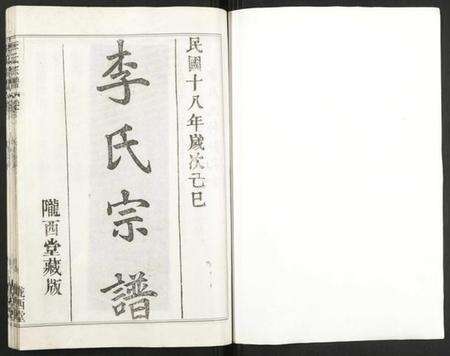 民國十八年歲次己巳
李氏宗譜
隴西堂藏版